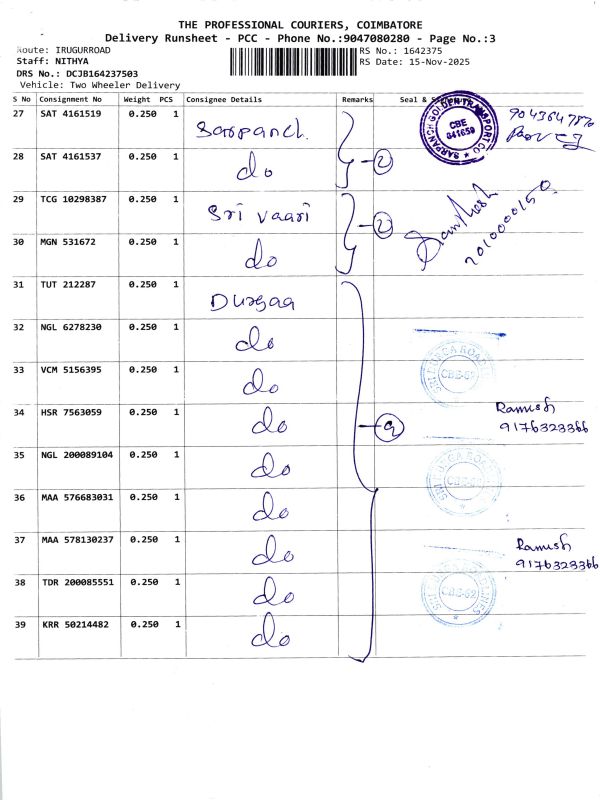 THE PROFESSIONAL COURIERS, COIMBATORE
Delivery Runsheet - PCC - Phone No.:9047080280 - Page No.:3
Route: IRUGURROAD
RS No.: 1642375
Staff: NITHYA
RS Date: 15-Nov-2025
DRS No.: DCJB164237503
Vehicle: Two Wheeler Delivery
S No Consignment No Weight PCS Consignee Details Remarks Seal &
27 SAT 4161519 0.250 1 Sarpanch.
SARPANCH GOLDEN TRANSPORT CO
CBE
641659
28 SAT 4161537 0.250 1 do 2
29 TCG 10298387 0.250 1 Sri Vaari 2
30 MGN 531672 0.250 1 do
31 TUT 212287 0.250 1 Durgaa
32 NGL 6278230 0.250 1 do
33 VCM 5156395 0.250 1 do
34 HSR 7563059 0.250 1 do 9 Ramesh
9176323366
35 NGL 200089104 0.250 1 do
36 MAA 576683031 0.250 1 do
37 MAA 578130237 0.250 1 do Ramesh
9176323366
38 TDR 200085551 0.250 1 do
39 KRR 50214482 0.250 1 do